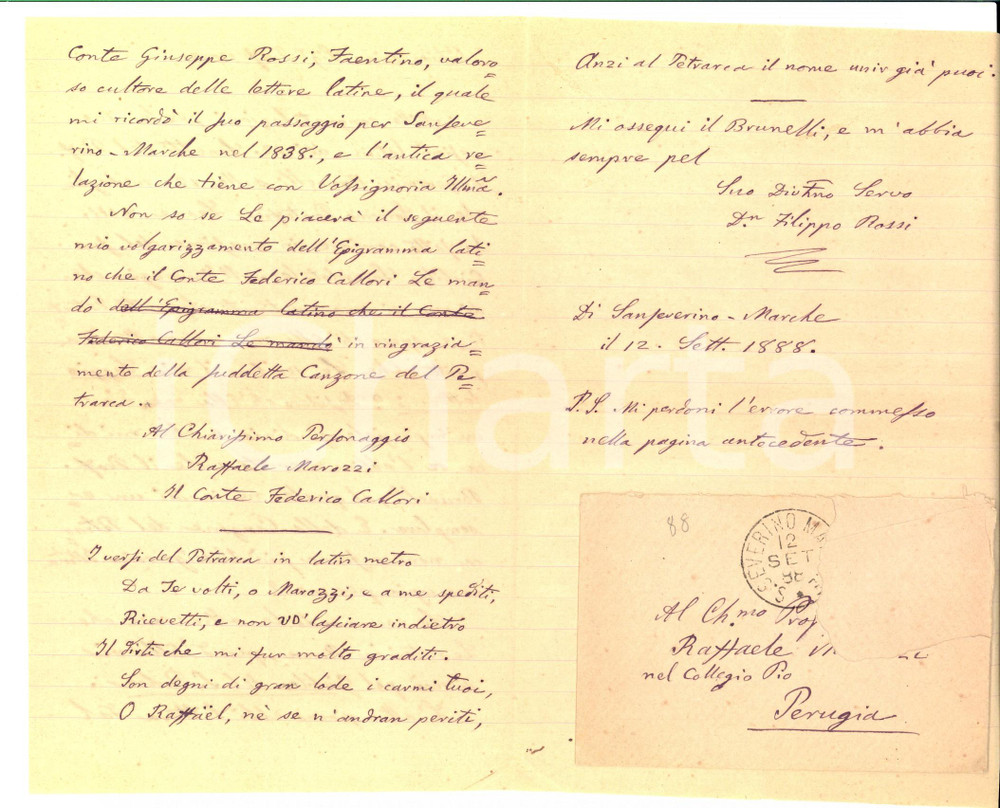 Conte Giuseppe Rossi, Faentino, valoro=
so cultore delle lettere latine, il quale
mi ricordò il suo passaggio per Sanseve=
rino-Marche nel 1838., e l'antica re=
lazione che tiene con Vossignoria Illma.
Non so se Le piacerà il seguente
mio volgarizzamento dell'Epigramma lati=
no che il Conte Federico Callori Le man=
dò dell'Epigramma latino che il Conte
Federico Callori Le mandò in ringrazia=
mento della suddetta Canzone del Pe=
trarca.
Al Chiarissimo Personaggio
Raffaele Marozzi
Il Conte Federico Callori
I versi del Petrarca in latin metro
Da Te volti, o Marozzi, e a me spediti,
Ricevetti, e non vo' lasciare indietro
Il dirti che mi fur molto graditi.
Son degni di gran lode i carmi tuoi,
O Raffaël, nè se n'andran periti,
Anzi al Petrarca il nome unir già puoi.
Mi ossequi il Brunelli, e m'abbia
sempre pel
Suo Servo
Dr. Filippo Rossi
Di Sanseverino-Marche
il 12. Sett. 1888.
P.S. Mi perdoni l'errore commesso
nella pagina antecedente.
88
SEVERINO MA
12
SET
88
Al Ch.mo Prof
Raffaele
nel Collegio Pio
Perugia
iCharta